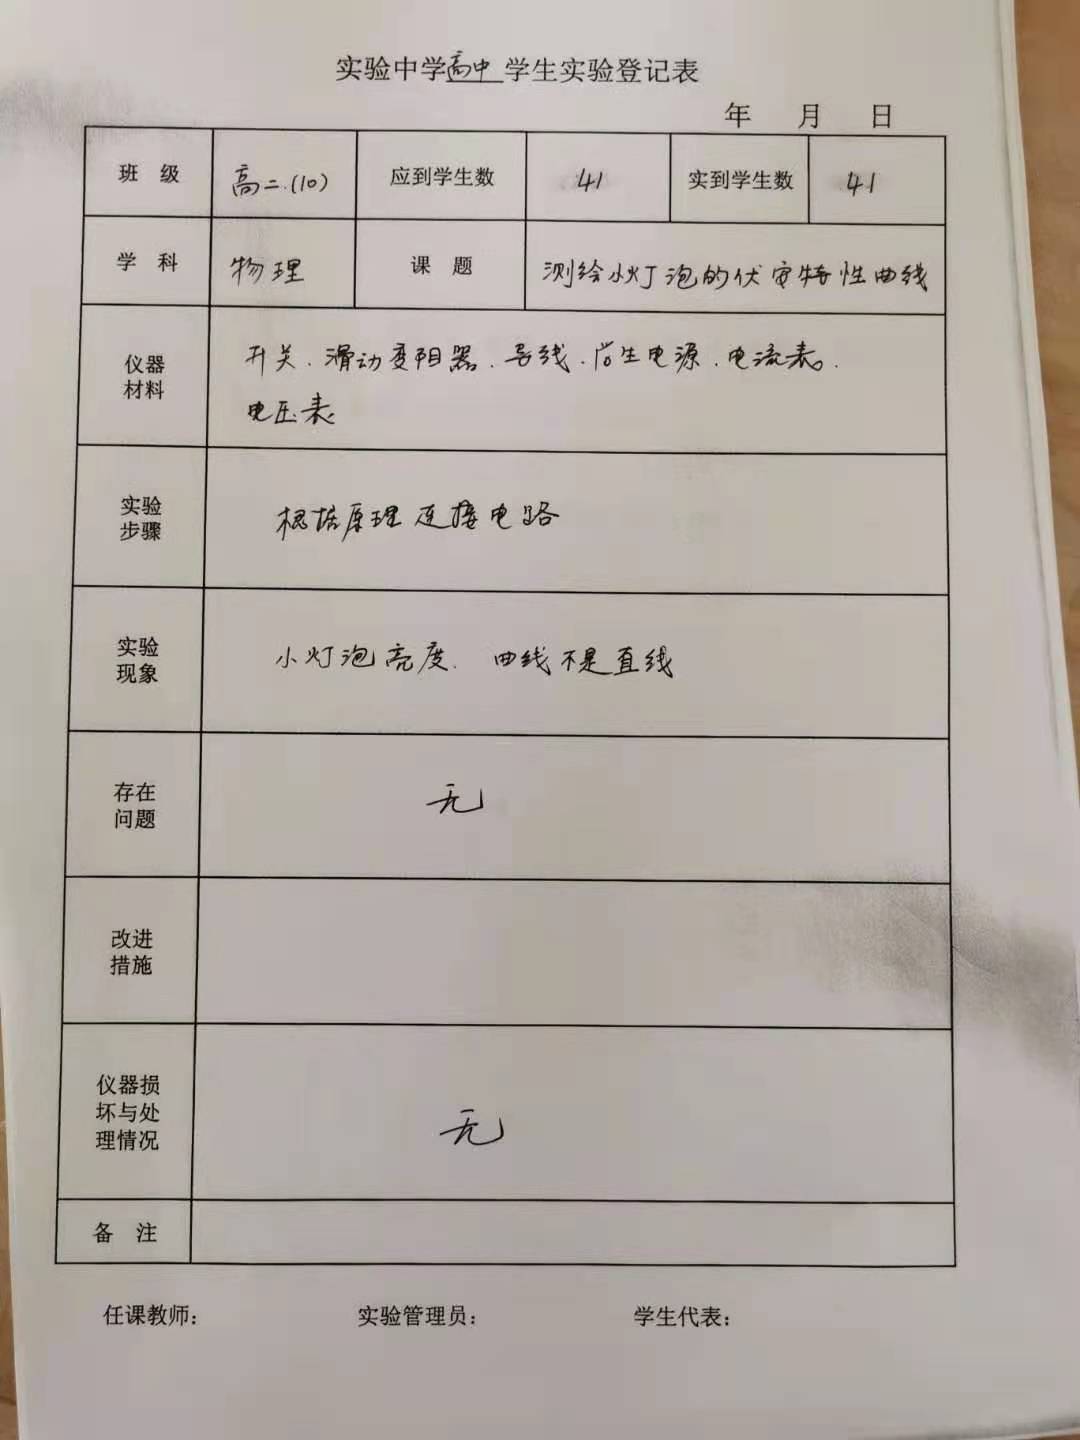 实验中学高中学生实验登记表
年 月 日
班 级 高二.(10) 应到学生数 41 实到学生数 41
学 科 物理 课 题 测绘小灯泡的伏安特性曲线
仪器
材料
开关、滑动变阻器、导线、学生电源、电流表、
电压表
实验
步骤
根据原理连接电路
实验
现象
小灯泡亮度. 曲线不是直线
存在
问题
无
改进
措施
仪器损
坏与处
理情况
无
备 注
任课教师: 实验管理员: 学生代表: